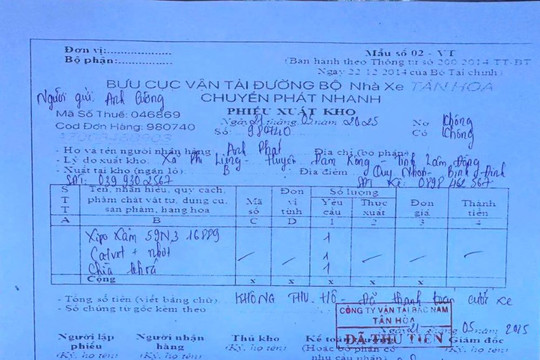 Đơn vị:
Mẫu số 02 - VT
Bộ phận:
(Ban hành theo Thông tư số 200-2014-TT-BT
Ngày 22-12-2014 của Bộ Tài chính)
BƯU CỤC VẬN TẢI ĐƯỜNG BỘ Nhà Xe TÂN HOA
CHUYỂN PHÁT NHANH
Người gửi Anh
PHIẾU XUẤT KHO
Mã Số Thuế: 046869
Ngày 21 tháng 05 năm 2025
Nợ không
Cod Đơn Hàng: 980740
Số: 980740
Có không
- Họ và tên người nhận hàng: Anh Phát
Địa chỉ (bộ phận)
- Lý do xuất kho: Xã Phi Liêng - Huyện Đam Rông - Tỉnh Lâm Đồng
- Xuất tại kho (ngăn lô):
Địa điểm Quy Nhơn - Bình Định
SĐT: 039 930 2567
S T T
Tên, nhãn hiệu, quy cách, phẩm chất vật tư, dụng cụ, sản phẩm, hàng hóa
Mã số
Đơn vị tính
Số lượng
Yêu cầu
Thực xuất
Đơn giá
Thành tiền
A
B
C
D
1
2
3
4
Xipo Xám 59N3 16889
1
Cavet +
1
Chìa khóa
1
Cộng
x
x
x
x
- Tổng số tiền (viết bằng chữ): KHÔNG THU - Đã thanh toán cước xe
- Số chứng từ gốc kèm theo
CÔNG TY VẬN TẢI BẮC NAM
TÂN HÒA
ĐÃ THU TIỀN
Ngày 21 tháng 05 năm 2025
Người lập phiếu
Người nhận hàng
Thủ kho
Kế toán
Giám đốc
(Ký, họ tên)
(Ký, họ tên)
(Ký, họ tên)
(Hoặc bộ phận có nhu cầu nhập)
(Ký, họ tên)